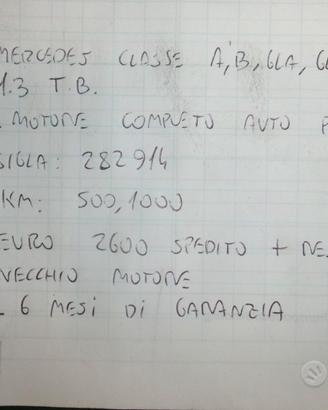 MERCEDES CLASSE A, B, GLA,
1.3 T.B.
MOTORE COMPLETO AUTO
SIGLA: 282914
KM: 500,1000
EURO 2600 SPEDITO +
VECCHIO MOTORE
- 6 MESI DI GARANZIA